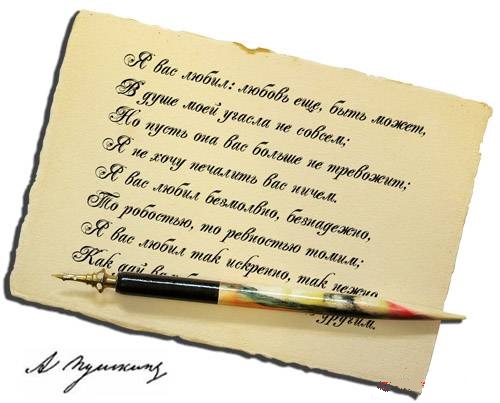 Я вас любил: любовь еще, быть может,
В душе моей угасла не совсем;
Но пусть она вас больше не тревожит;
Я не хочу печалить вас ничем.
Я вас любил безмолвно, безнадежно,
То робостью, то ревностью томим;
Я вас любил так искренно, так нежно,
Как дай вам
другим.
А Пушкинъ